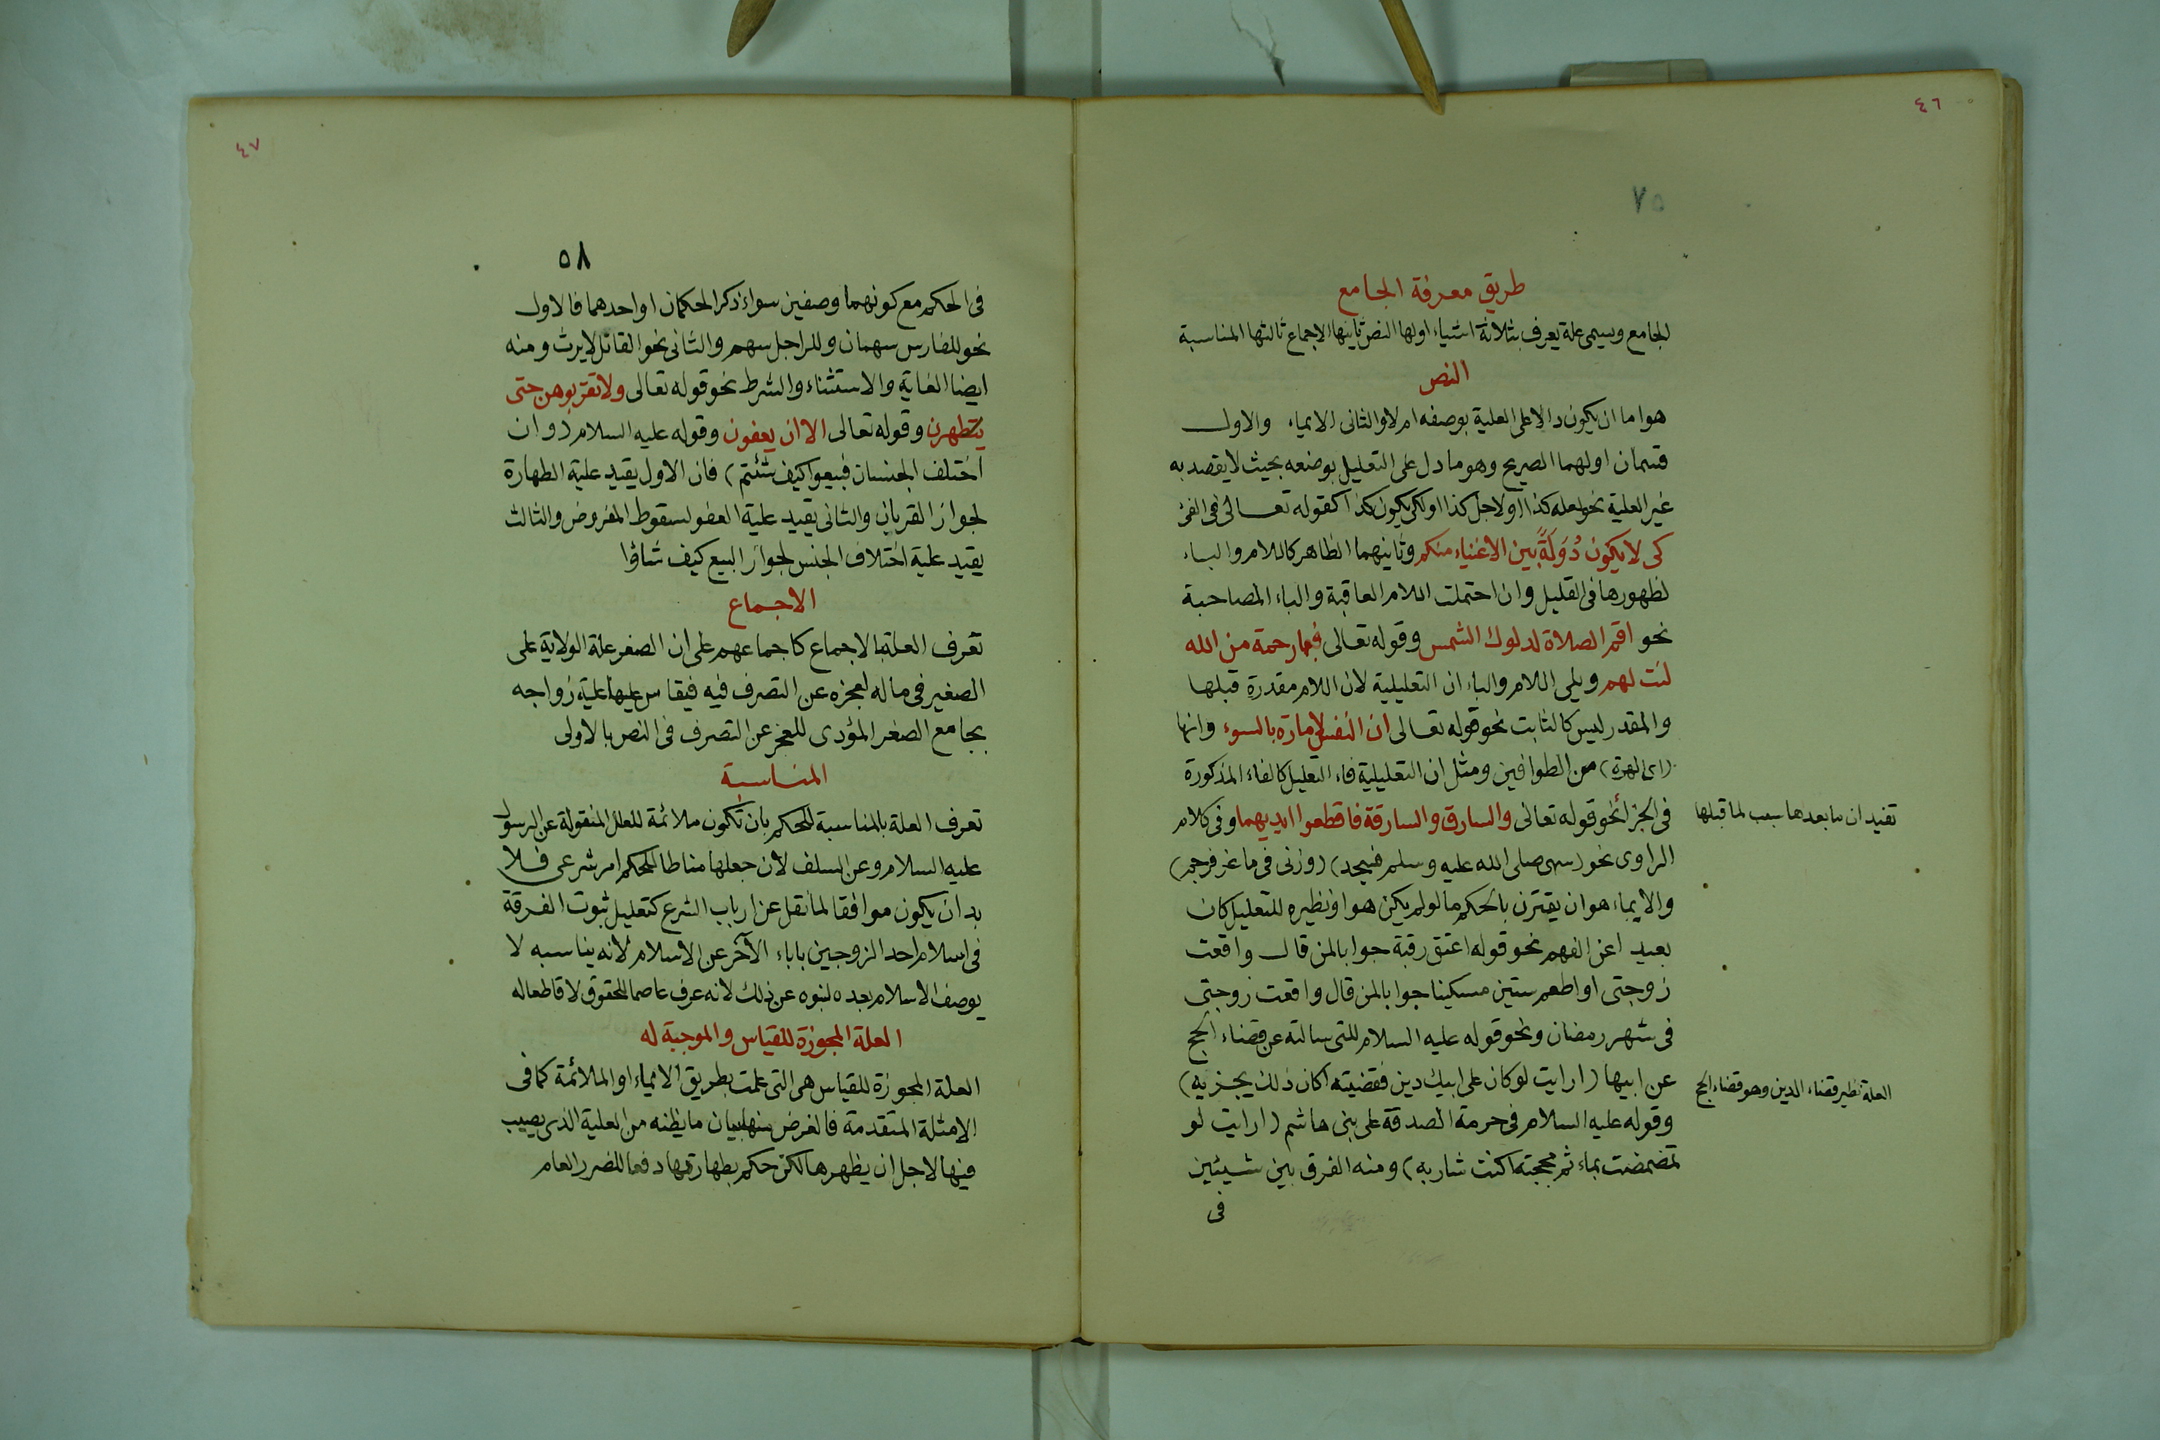 ٤٦
٧٥
طريق معرفة الجامع
الجامع ويسمى علة يعرف بثلاثة اشياء اولها النص ثانيها الاجماع ثالثها المناسبة
النص
هو اما ان يكون دالا على العلية بوصفه ام لا والثانى الايماء والاول
قسمان اولهما الصريح وهو ما دل على التعليل بوضعه بحيث لا يقصد به
غير العلية نحو لعله كذا او لاجل كذا او لكى يكون كذا كقوله تعالى فى الفئ
كى لا يكون دُولَةً بين الاغنياء منكم وثانيهما الظاهر كاللام والباء
لظهورها فى التعليل وان احتملت اللام العاقبة والباء المصاحبة
نحو اقم الصلاة لدلوك الشمس وقوله تعالى فبما رحمة من الله
لنت لهم ويلى اللام والباء ان التعليلية لان اللام مقدرة قبلها
والمقدر ليس كالثابت نحو قوله تعالى ان النفس لامارة بالسوء وانها
(اى الهرة) من الطوافين ومثل ان التعليلية فاء التعليل كالفاء المذكورة
فى الجزاء نحو قوله تعالى والسارق والسارقة فاقطعوا ايديهما وفى كلام
تفيد ان ما بعدها سبب لما قبلها
الراوى نحو (سهى صلى الله عليه وسلم فسجد) (وزنى فى ماعز فرجم)
والايماء هو ان يقترن بالحكم ما لو لم يكن هو او نظيره للتعليل كان
بعيدا عن الفهم نحو قوله اعتق رقبة جوابا لمن قال واقعت
زوجتى او اطعم ستين مسكينا جوابا لمن قال واقعت زوجتى
فى شهر رمضان ونحو قوله عليه السلام للتى سالته عن قضاء الحج
عن ابيها (ارايت لو كان على ابيك دين فقضيته اكان ذلك يجزيه)
العلة نظير قضاء الدين وهو قضاء الحج
وقوله عليه السلام فى حرمة الصدقة على بنى هاشم (ارايت لو
تمضمضت بماء ثم مججته اكنت شاربه) ومنه الفرق بين شيئين
فى
٤٧
٥٨
فى الحكم مع كونهما وصفين سواء ذكر الحكمان او احدهما فالاول
نحو للفارس سهمان وللراجل سهم والثانى نحو القاتل لا يرث ومنه
ايضا الغاية والاستثناء والشرط نحو قوله تعالى ولا تقربوهن حتى
يتطهرن وقوله تعالى الا ان يعفون وقوله عليه السلام (وان
اختلف الجنسان فبيعوا كيف شئتم) فان الاول يفيد علية الطهارة
لجواز القربان والثانى يفيد علية العفو لسقوط المفروض والثالث
يفيد علية اختلاف الجنس لجواز البيع كيف شاؤا
الاجماع
تعرف العلة بالاجماع كاجماعهم على ان الصغر علة الولاية على
الصغير فى ماله لعجزه عن التصرف فيه فيقاس عليها علية زواجه
بجامع الصغر المؤدى للعجز عن التصرف فى النص بالاولى
المناسبة
تعرف العلة بالمناسبة للحكم بان تكون ملائمة للعلل المنقولة عن الرسول
عليه السلام وعن السلف لان جعلها مناطا للحكم امر شرعى فلا
بد ان يكون موافقا لما نقل عن ارباب الشرع كتعليل ثبوت الفرقة
فى اسلام احد الزوجين باباء الآخر عن الاسلام لانه يناسبه لا
بوصف الاسلام بعده لنبوه عن ذلك لانه عرف عاصما للحقوق لا قاطعا له
العلة المجوزة للقياس والموجبة له
العلة المجوزة للقياس هى التى علمت بطريق الايماء او الملائمة كما فى
الامثلة المتقدمة فالغرض منها بيان ما يظنه من العلية الذى يصيب
فيها لاجل ان يظهرها لكن حكم بطهارتها دفعا للضرر العام